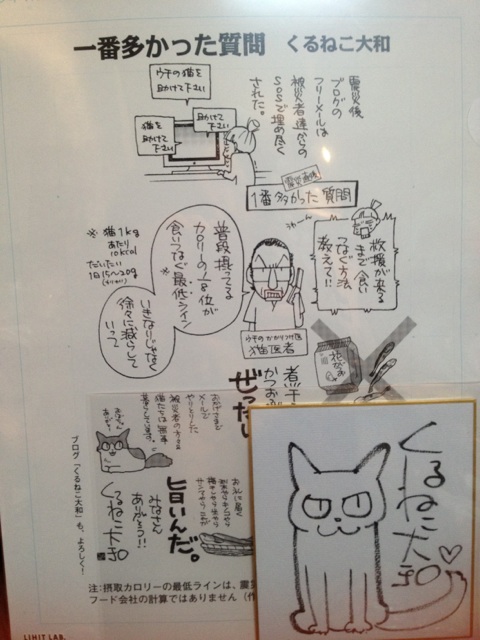 一番多かった質問 くるねこ大和
震災後
ブログの
フリーメールは
被災者達からの
SOSで埋め尽く
された。
ウチの猫を
助けて下さい
助けて
下さい
猫を
助けて
下さい
震災直後
1番多かった質問
救援が来る
まで食い
つなぐ方法
教えて!!
普段摂ってる
カロリーの1/8位が
食いつなぐ最低ライン
※
いきなりじゃなく
徐々に減らして
いって
※猫1kg
あたり
10kcal
だいたい
1日15〜20g
ウチのかかりつけ医
猫医者
花がつお
煮干
かつおぶ
ぜったい
メールで
やりとりした
被災者の方々
猫たちは無事
暮らしています。
旨いんだ。
みなさん
ありがとう!!
くるねこ大和
ブログ「くるねこ大和」も、よろしく!
注:摂取カロリーの最低ラインは、震
フード会社の計算ではありません(作
くるねこ大和
LIHIT LAB.